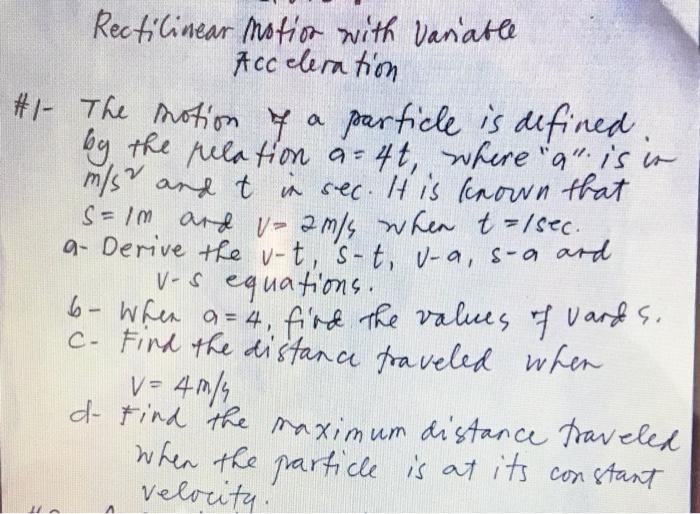 Rectilinear Motion with Variable
Acceleration
#1- The motion of a particle is defined
by the relation a = 4t, where "a" is in
m/s² and t in sec. It is known that
S = 1m and V = 2m/s when t = 1sec.
a- Derive the v-t, s-t, v-a, s-a and
v-s equations.
b- When a = 4, find the values of v and s.
C- Find the distance traveled when
V = 4m/s
d- Find the maximum distance traveled
when the particle is at its constant
velocity.